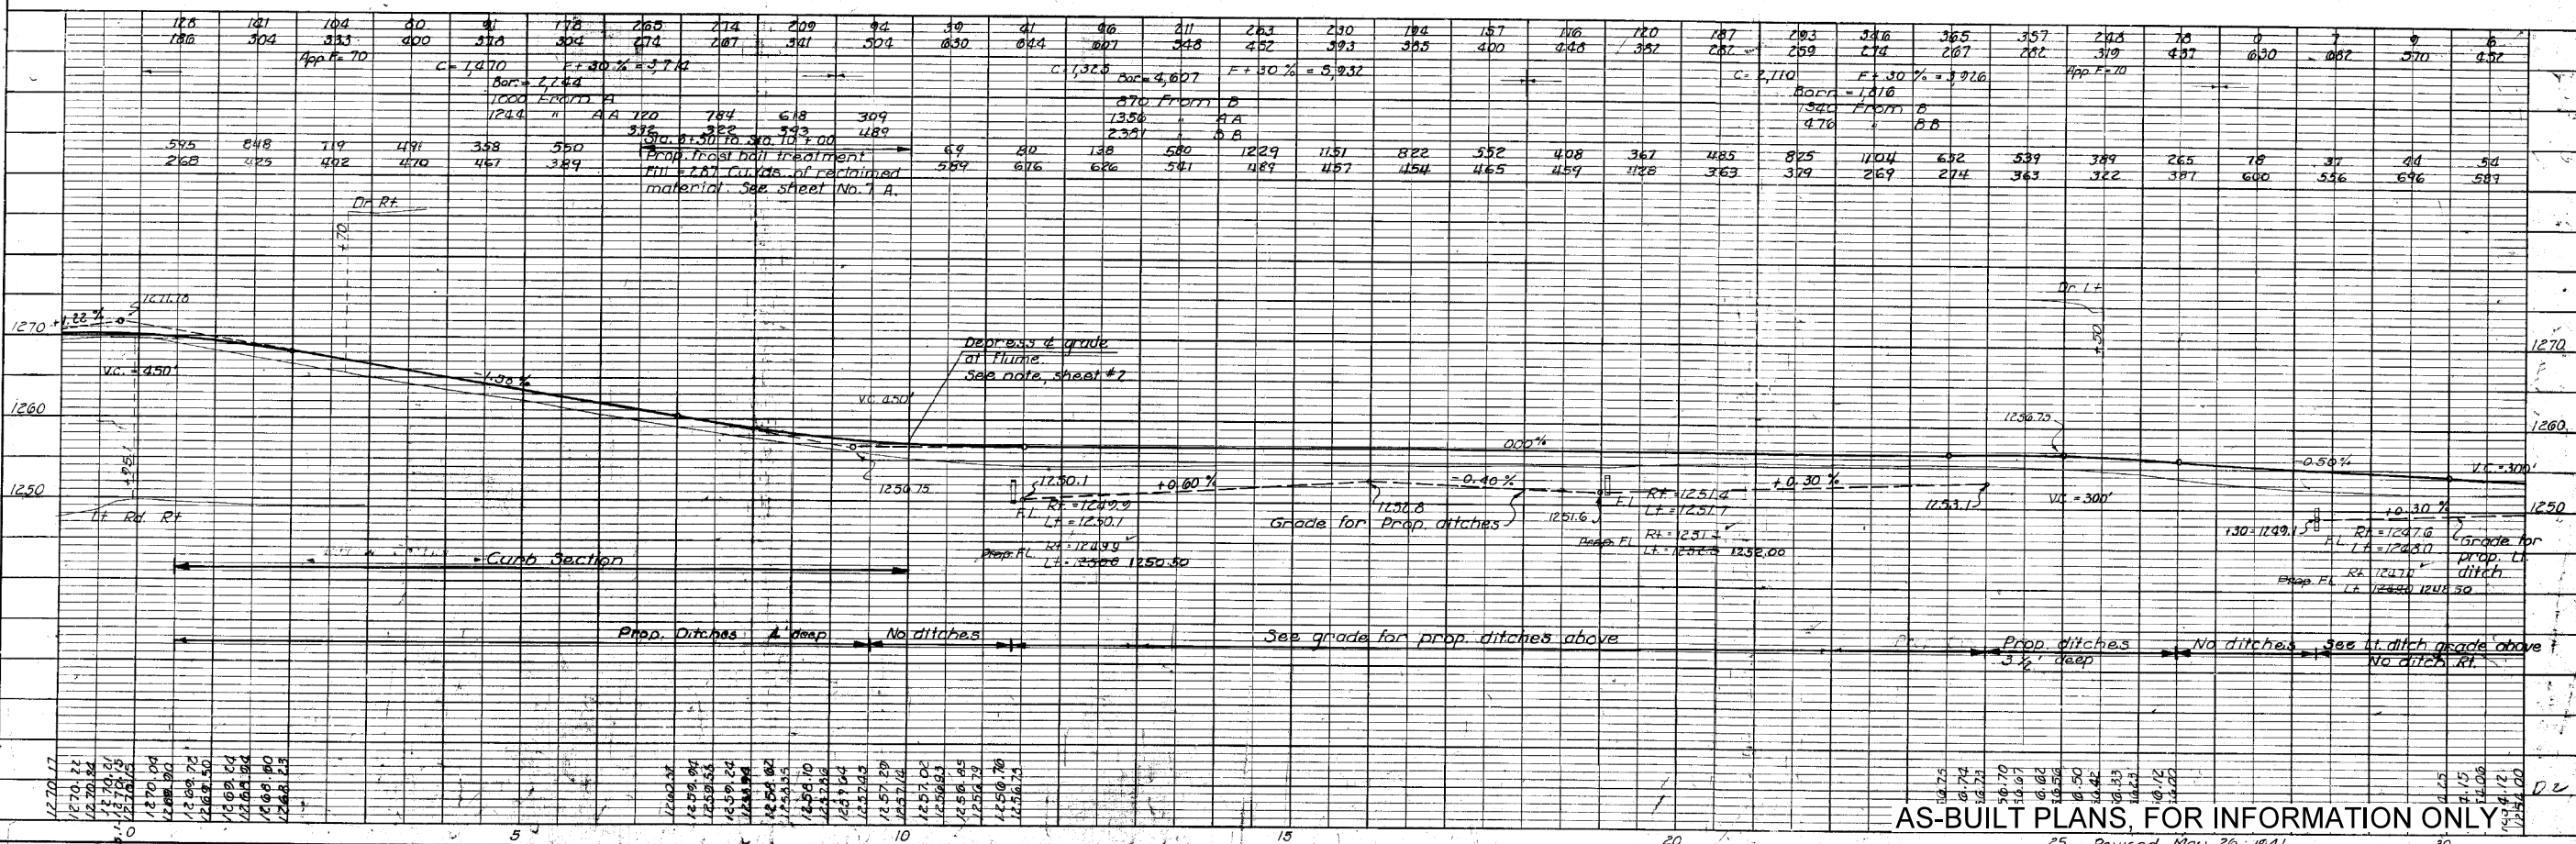 128 141 104 80 91 178 265 274 209 94 39 41 96 211 263 230 194 157 116 120 187 293 346 365 357 248 78 9 6
186 304 333 400 378 304 274 267 341 504 630 644 607 548 452 393 385 400 448 382 282 259 274 267 282 319 437 630 682 570 452
App F= 70
C= 1,470 F + 30 % = 3,714
Bor.= 2,244
1000 From A
1244 " AA
720 784 618 309
332 322 393 489
C= 1,325 Bor= 4,607 F + 30 % = 5,932
870 From B
1356 " AA
2381 " BB
C= 2,110 F + 30 % = 3926
Borr = 1,816
1340 From B
476 " BB
App F=70
595 848 719 491 358 550
268 425 402 470 467 389
Sta. 6+50 to Sta. 10+00
Prop. frost boil treatment
Fill = 287 Cu.Yds. of reclaimed
material. See sheet No. 7 A.
69 80 138 580 1229 1151 822 552 408 367 485 825 1104 652 539 389 265 78 37 44 54
589 676 626 541 489 457 454 465 459 428 363 379 269 274 363 322 387 600 556 696 589
Dr. Rt
+70
Dr. Lt
+50
1271.78
+1.22 %
1270
1270
V.C. = 450'
-1.50 %
Depress & grade
at flume.
See note, sheet #2
V.C. 450'
1260
1260
1256.75
000 %
1256.75
-0.50 %
V.C. = 300'
V.C. = 300'
1250
1250
+95.1
Lt. Rd. Rt
1250.1
+0.60 %
F.L. Rt = 1249.9
Lt = 1250.1
Prop. F.L. Rt = 1249.9
Lt = 1250.50
1252.8
-0.40 %
Grade for Prop. ditches
1251.6
F.L. Rt = 1251.4
Lt = 1251.7
Prop. F.L. Rt = 1251.
Lt = 1252.00
+0.30 %
1253.1
+30 = 1249.1
+0.30 %
F.L. Rt = 1247.6
Lt = 1248.0
Prop. F.L. Rt 1247.0
Lt 1248.50
Grade for
prop. Lt.
ditch
Curb Section
Prop. Ditches 4' deep
No ditches
See grade for prop. ditches above
Prop. ditches
3 ½' deep
No ditches
See Lt. ditch grade above
No ditch Rt.
1270.17
1270.22
1270.24
1270.21
1270.15
1270.04
1269.90
1269.72
1269.50
1269.24
1268.94
1268.60
1268.23
1260.37
1259.94
1259.55
1259.24
1258.94
1258.62
1258.35
1258.10
1257.86
1257.64
1257.45
1257.29
1257.14
1257.02
1256.93
1256.85
1256.79
1256.76
1256.75
56.75
56.74
56.73
56.70
56.67
56.62
56.56
56.50
56.42
56.33
56.23
56.12
56.00
4.25
4.15
54.06
1254.00
D2
0 5 10 15 20 25 30
AS-BUILT PLANS, FOR INFORMATION ONLY
Revised May 26, 1941